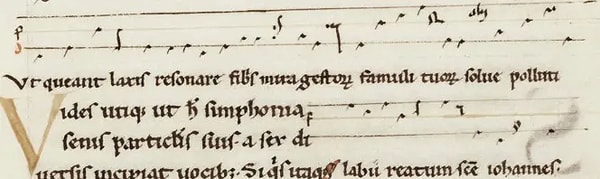 Vt queant laxis resonare fib̄s mira gestoꝝ famuli tuoꝝ solue polluti
Vides utiqꝫ ut h̄ simphonia
senis particl̄is suis · a sex di
uersis incipiat uocibꝫ. Si q̄s itaqꝫ labii reatum sc̄e iohannes.